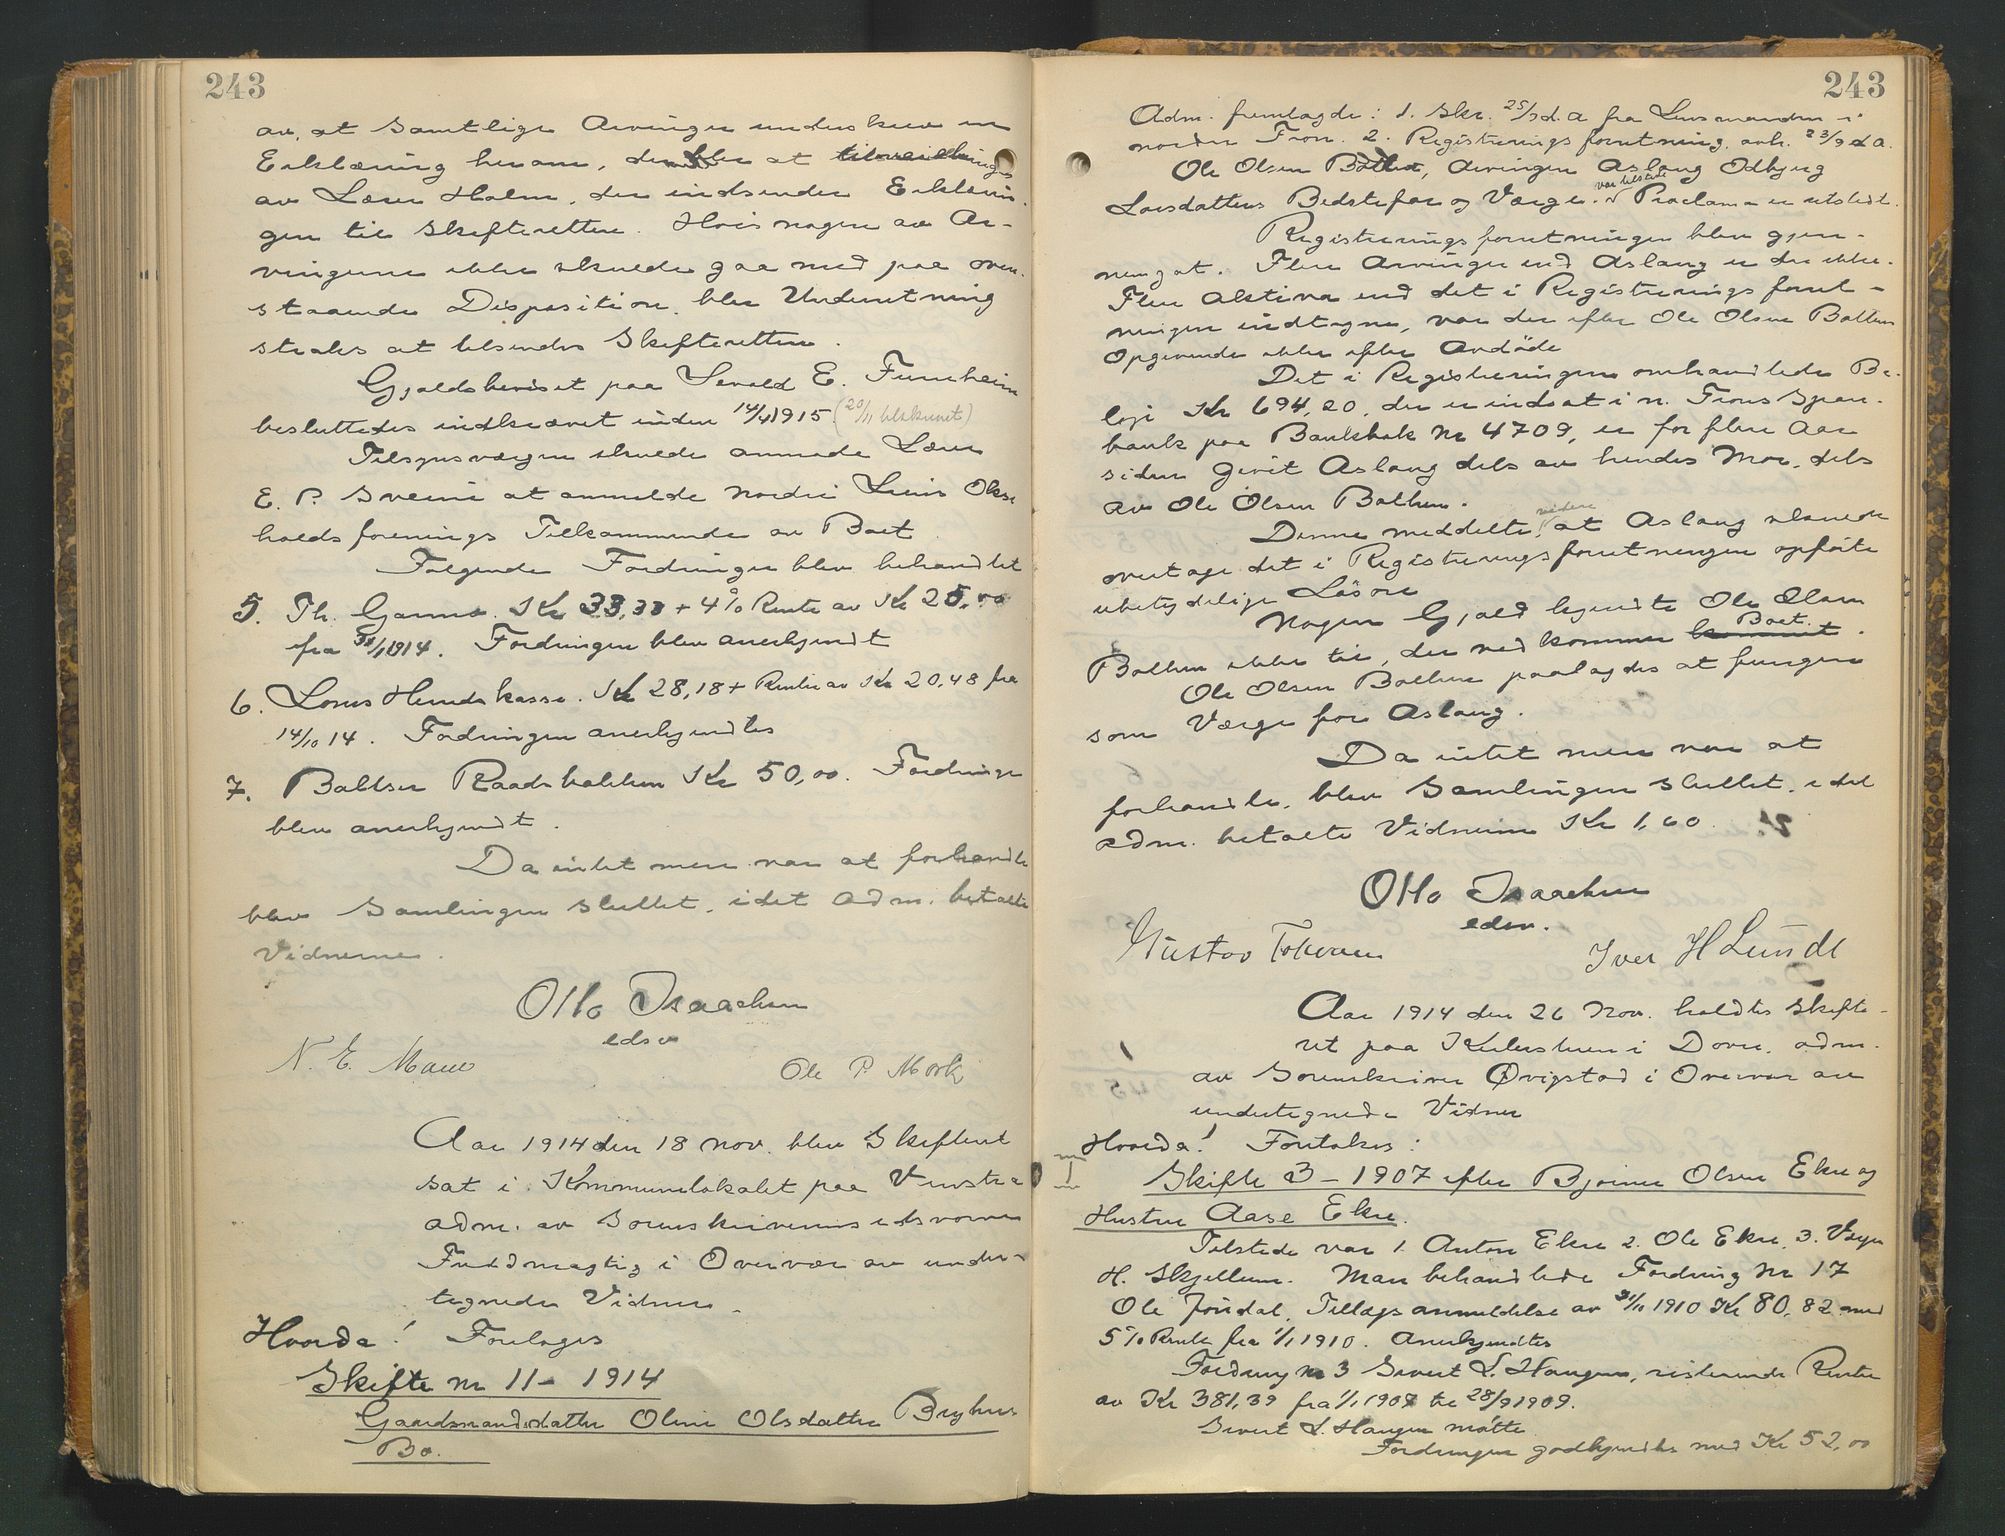 243
av, at samtlige Arvinger underskrev en
Erklæring herom, der blev at tilveiebringes
av Lærer Holm, der indsender Erklærin-
gen til Skifteretten. Hvis nogen av Ar-
vingerne ikke skulde gaa med paa oven-
staaende Disposition, blev Underretning
straks at tilsendes Skifteretten.
Gjældsbeviset paa Sevald E. Furuheim
besluttedes indkrævet inden 14/4 1915. (20/11 tilskrevet)
Tilsynsværgen skulde anmode Lærer
E. P. Sveine at anmelde nordre Lesis Okse
holdsforenings Tilkommende av Boet
Følgende Fordringer blev behandlet
5. Th. Gamme. Kr 33,33 + 4% Rente av Kr 25,00
fra 1914. Fordringen blev anerkjendt
6. Loms Herredskasse. Kr 28,18 + Renter av Kr 20,48 fra
14/10 14. Fordringen anerkjendtes
7. Baltser Raadsbakken Kr 50,00. Fordringen
blev anerkjendt.
Da intet mere var at forhandle
blev Samlingen sluttet, idet Adm. betalte
Vidnerne.
Otto Isaachsen
edsv
N. E. Ole P. Mork
Aar 1914 den 18 Nov. blev Skifteret
sat i Kommunelokalet paa Venstra
adm. av Sorenskriverens edsvorne
Fuldmægtig i Overvær av under-
tegnede Vidner.
Hvorda! Foretoges
Skifte nr 11 - 1914
Gaardmandsdatter Oline Olsdatter Bryhns
Bo.
243
Adm. fremlagde: 1. Skr. 25/9 d.a fra Lensmanden i
nordre Fron. 2. Registreringsforretning avh. 23/9 d a.
Ole Olsen Botten, Arvingen Aslaug Odbjørg
Larsdatters Bedstefar og Værge. var tilstede Proclama er utstedt.
Registreringsforretningen blev gjen-
nemgat. Flere Arvinger end Aslaug er der ikke.
Flere Aktiva end det i Registreringsforret-
ningen indtagne, var der efter Ole Olsen Bottens
Opgivende ikke efter Avdøde
Det i Registreringen omhandlede Be-
løp Kr 694,20, der er indsat i n. Frons Spare-
bank paa Bankbok Nr 4709, er for flere Aar
siden givet Aslaug dels av hendes Mor, dels
av Ole Olsen Botten.
Denne meddelte videre at Aslaug ønskede
overtage det i Registreringsforretningen opførte
ubetydelige Løsøre
Nogen Gjæld kjendte Ole Olsen
Botten ikke til, der vedkommer kommet Boet.
Ole Olsen Botten paalagdes at fungere
som Værge for Aslaug.
Da intet mere var at
forhandle, blev Samlingen sluttet, idet
adm. betalte Vidnerne Kr 1,60.
Otto Isaachsen
edsv.
Gustav Tokvam Iver H Lunde
Aar 1914 den 26 Nov. holdtes Skifte-
ret paa Kulerstuen i Dovre, adm.
av Sorenskriver Øvigstad i Overvær av
undertegnede Vidner
Hvorda! Foretokes:
Skifte 3 - 1907 efter Bjørner Olsen Ekre og
Hustru Aase Ekre.
Tilstede var 1. Anton Ekre 2. Ole Ekre, 3. Værgen
H. Skjellum. Man behandlede Fordring Nr 17
Ole Jöndal, Tillægsanmeldelse av 21/11 1910 Kr 80,82 med
5% Rente fra 1/1 1910. Anerkjendtes
Fordring Nr 3 Sivert S. Haugen, resterende Renter
av Kr 381,39 fra 1/1 1907 til 28/9 1909.
Sivert S. Haugen møtte
Fordringen godkjendtes med Kr 52,00